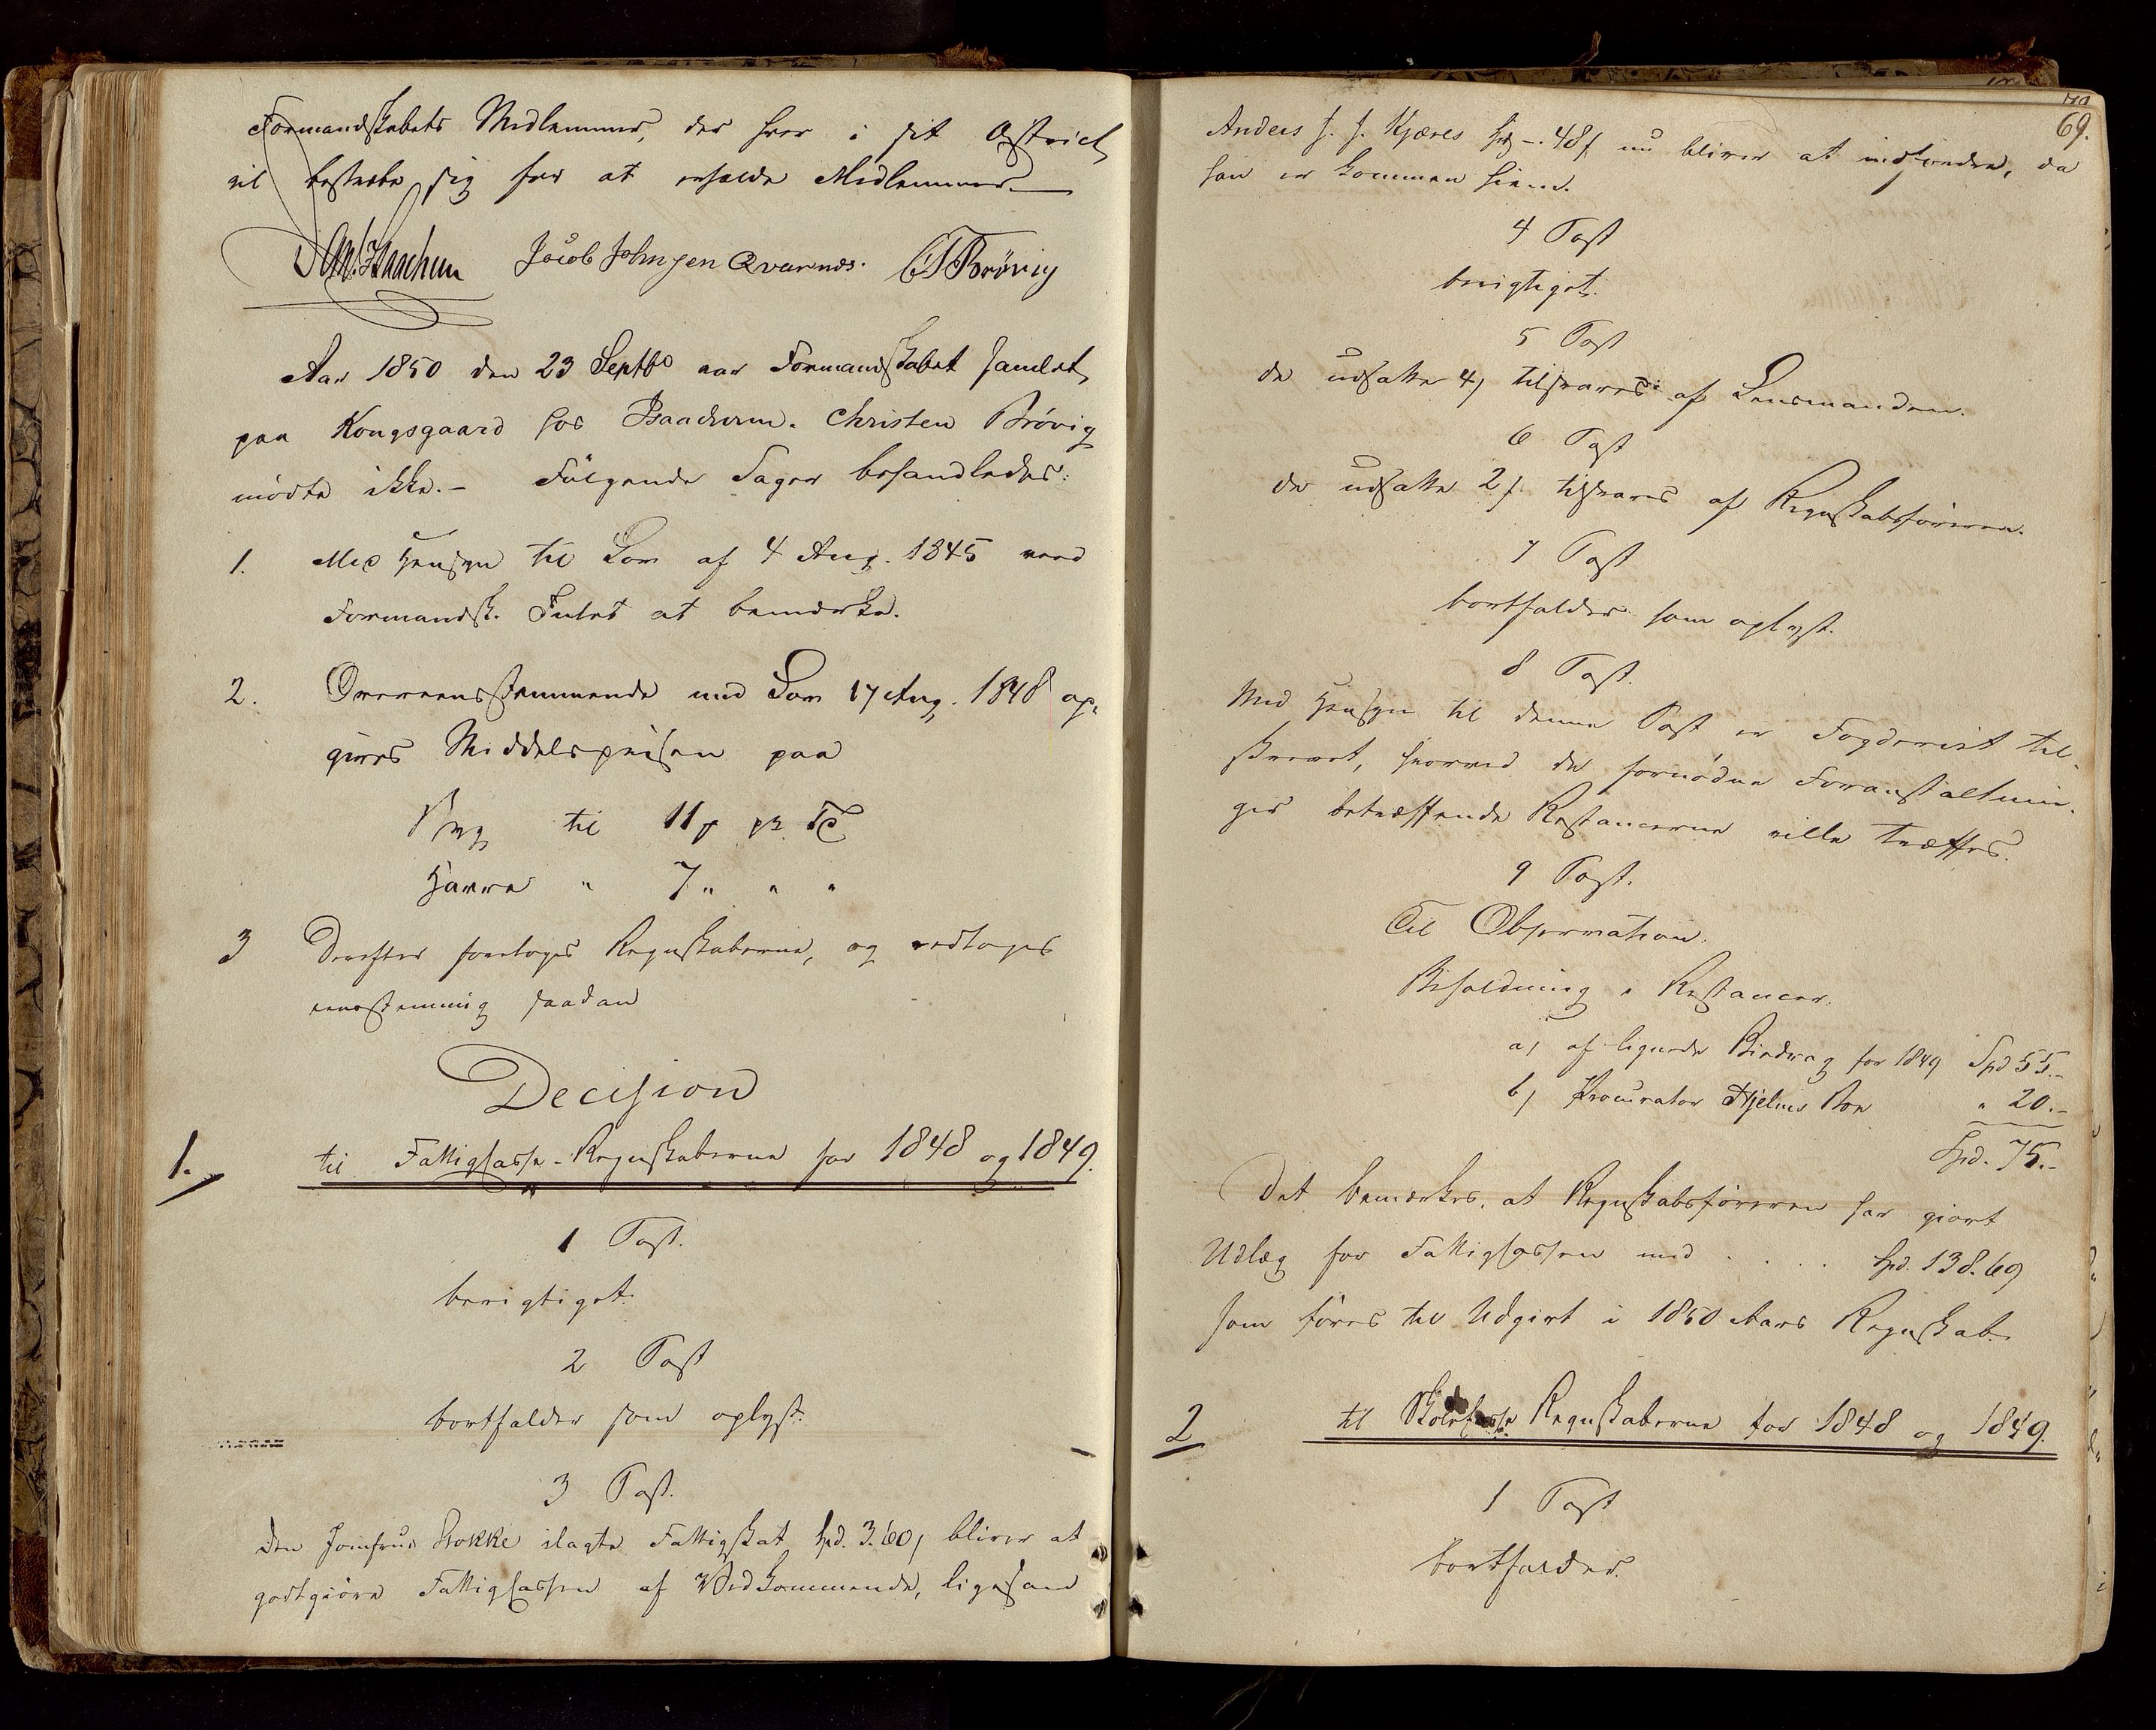 Formandskabets Medlemmer, der hver i sit District
vil bestræbe sig for at erholde Medlemmer.
Jacob Johnsen Qvarnæs. CTBrövig
Aar 1850 den 23 Septbr var Formandskabet samlet
paa Kongsgaard hos Christen Brövig
mödte ikke. - Fölgende Sager behandledes:
1. Med Hensyn til Lov af 4 Aug. 1845 var
Formandsk. Intet at bemærke.
2. Overeensstemmende med Lov 17 Aug. 1848 op-
gives Middelsprisen paa
Byg til 11 pr. Td
Havre " 7 " " "
3 Derefter foretoges Regnskaberne, og vedtoges
eenstemmig saadan
Decision
1. til Fattigkasse-Regnskaberne for 1848 og 1849.
1 Post.
berigtiget.
2 Post
bortfalder som oplyst.
3 Post.
Den Jomfrue Stokke ilagte Fattigskat Spd. 3.60, bliver at
godtgiöre Fattigkassen af Vedkommende, ligesom
69.
Anders J. J. Kjæres -. 48 nu bliver at indfordre, da
han er kommen hiem.
4 Post
berigtiget.
5 Post
de udsatte 4 tilsvares af Lensmanden.
6 Post
de udsatte 2 tilsvares af Regnskabsföreren.
7 Post
bortfalder som oplyst.
8 Post.
Med Hensyn til denne Post er Fogderiet til-
skrevet, hvorved de fornödne Foranstaltnin-
ger betræffende Restancerne ville træffes.
9 Post.
Til Observation.
Beholdning i Restancer.
a, af lignede Bidrag for 1849 Spd 55.-
b, Procurator Hjelms Bon " 20.-
Spd. 75.-
Det bemærkes, at Regnskabsföreren har giort
Udlæg for Fattigkassen med . . . . Spd. 138.69
som föres til Udgivt i 1850 Aars Regnskab.
2 til Skolekasse Regnskaberne for 1848 og 1849.
1 Post
bortfalder.